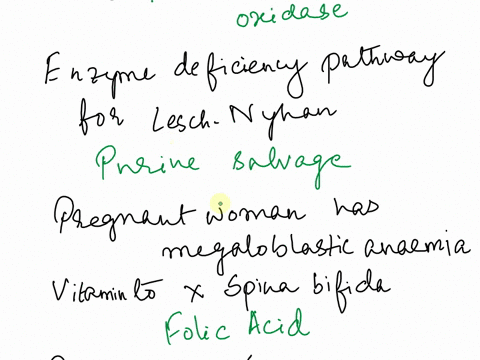 oxidase
Enzyme deficiency pathway
for Lesch-Nyhan
Purine salvage
Pregnant woman has
megaloblastic anaemia
Vitamin to x Spina bifida
Folic Acid